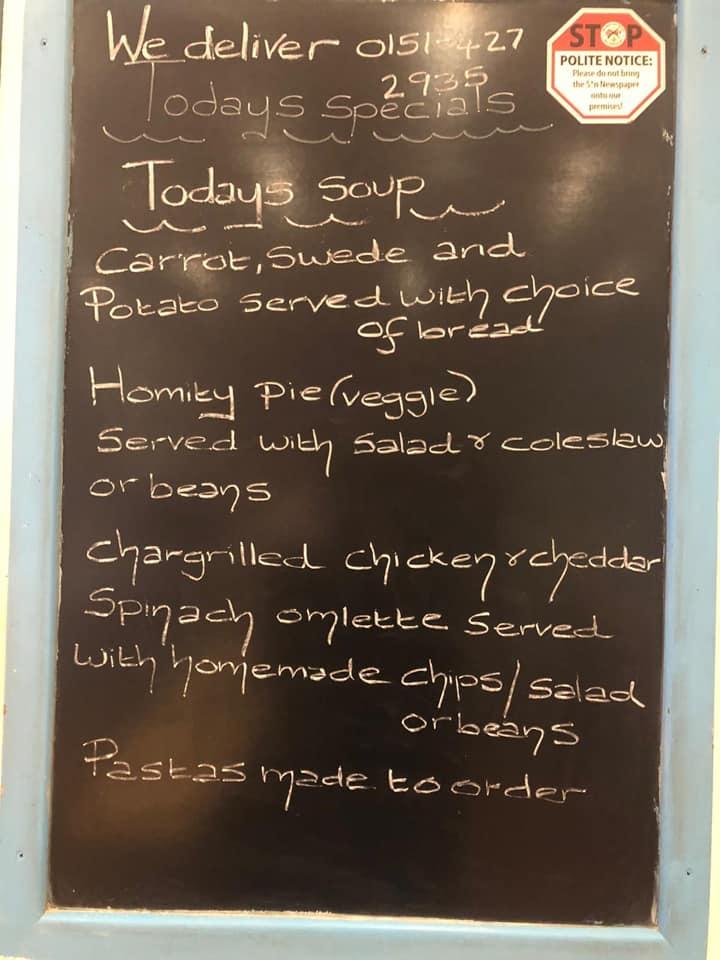 We deliver 0151-427
2935
Todays specials
STOP
POLITE NOTICE:
Please do not bring
the S*n Newspaper
onto our
premises!
Todays soup
Carrot, Swede and
Potato served with choice
of bread
Homity pie (veggie)
Served with salad & coleslaw
or beans
Chargrilled chicken & cheddar
Spinach omlette served
with homemade chips/salad
or beans
Pastas made to order